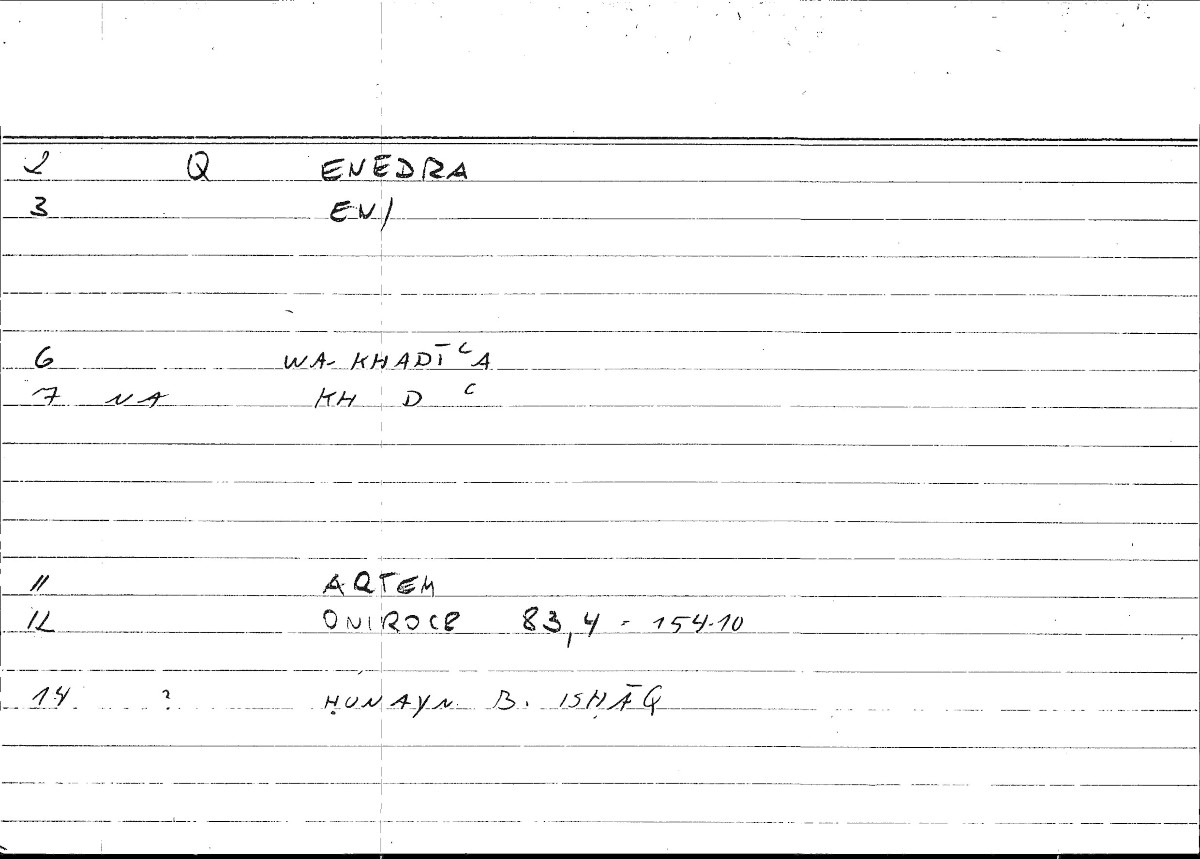 2 Q ENEDRA
3 EN/
6 WA-KHADĪʿA
7 NA KH D ʿ
11 ARTEM
12 ONIROCR 83,4 - 154.10
14 ? ḤUNAYN B. ISḤĀQ